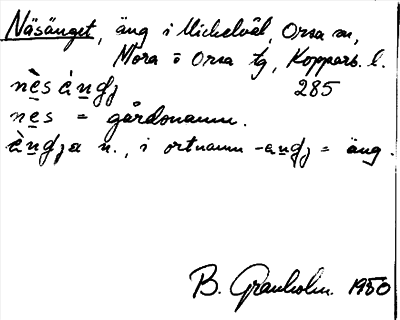 Näsänget, äng i Michelvål, Orsa sn,
Mora o Orsa tg, Kopparb. l.
nès àndj 285
nes = gårdonamn.
àndja n., i ortnamn -andj = äng.
B. Granholm. 1950